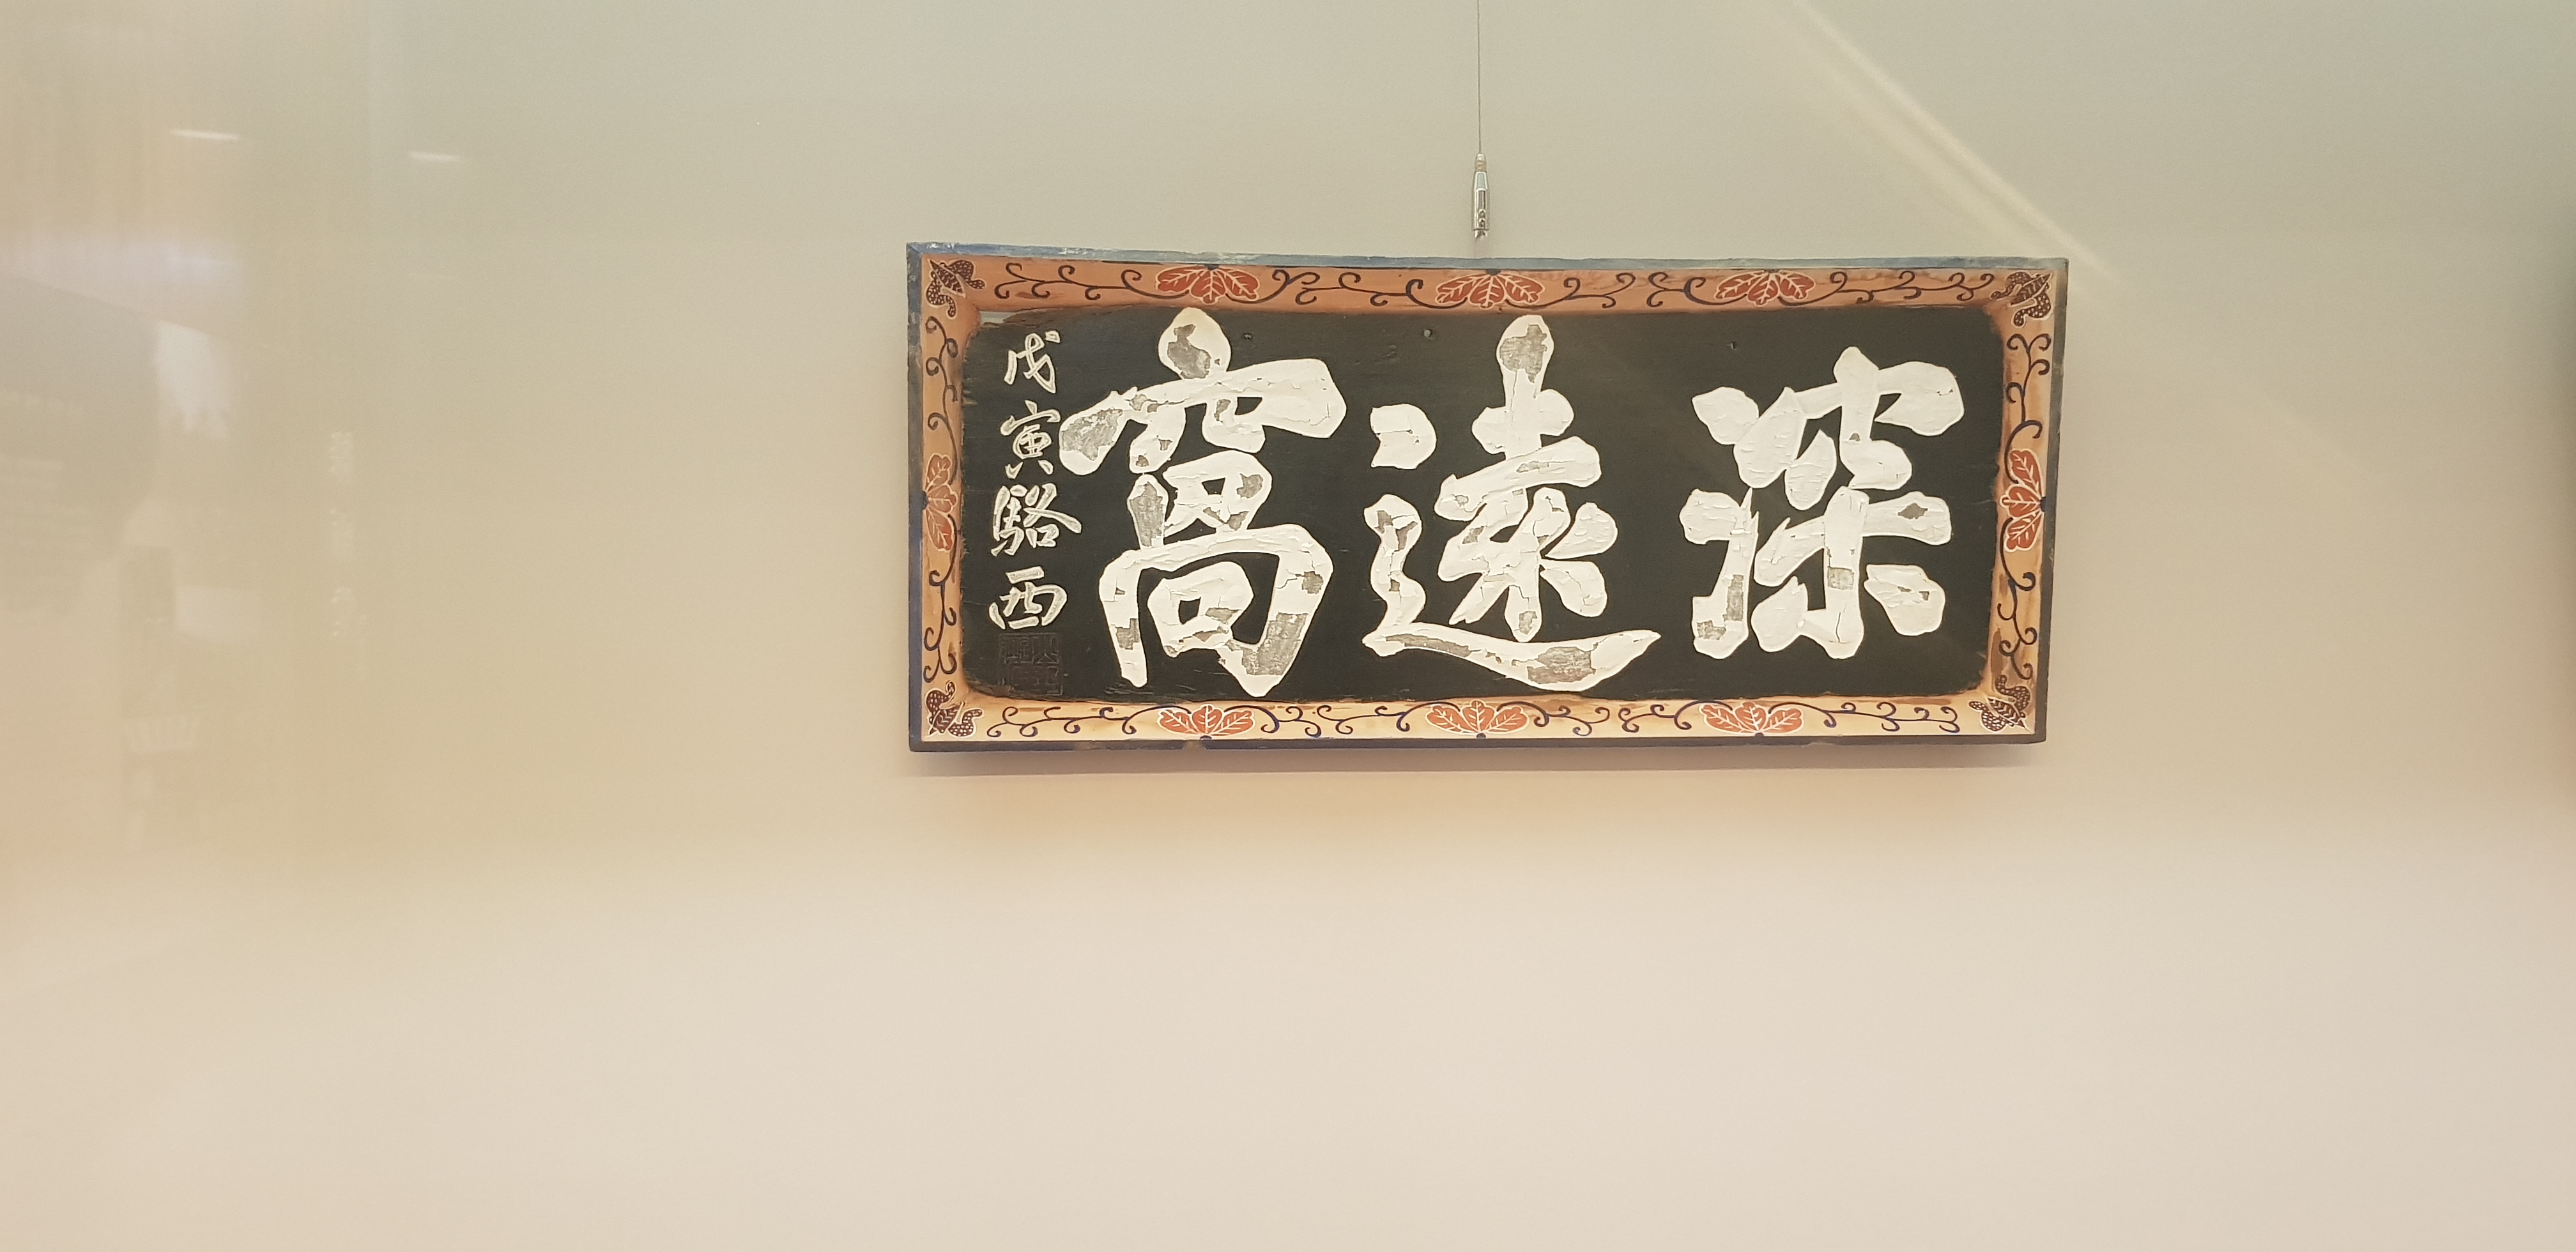 深遠窩
戊寅駱西